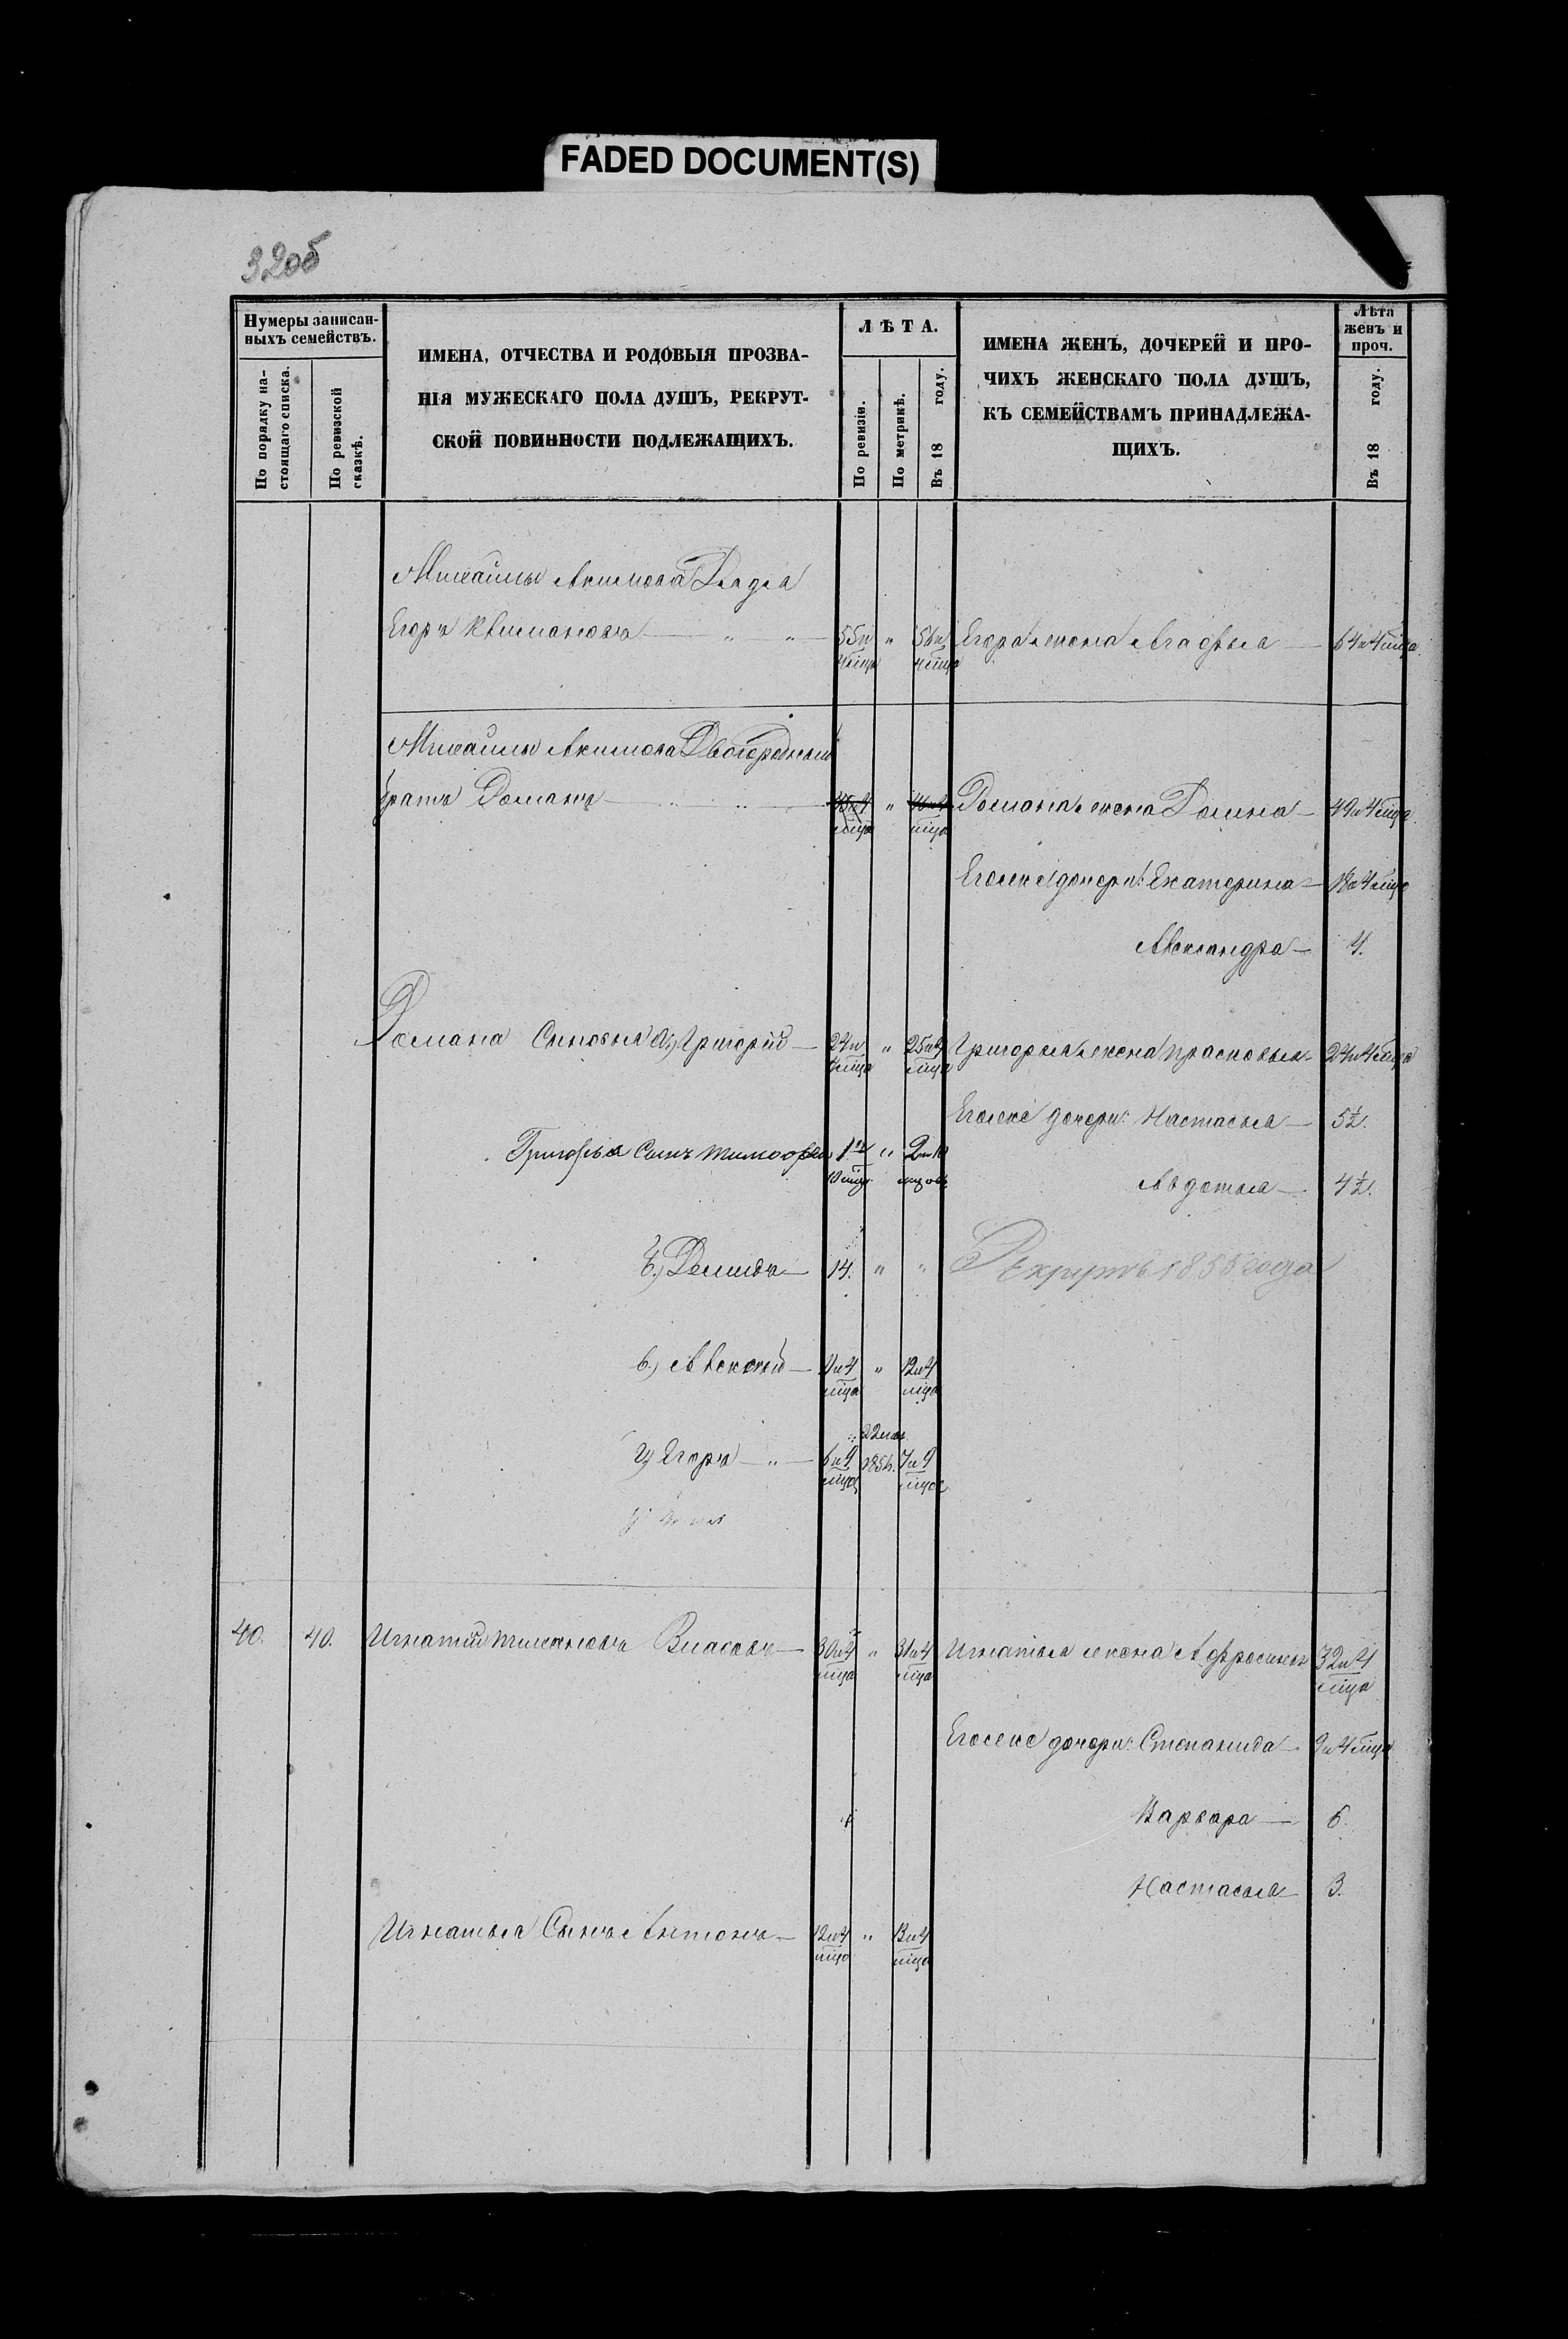 FADED DOCUMENT(S)
32об
Нумеры записан-
ныхъ семействъ.
По порядку на-
стоящаго списка.
По ревизской
сказкѣ.
ИМЕНА, ОТЧЕСТВА И РОДОВЫЯ ПРОЗВА-
НІЯ МУЖЕСКАГО ПОЛА ДУШЪ, РЕКРУТ-
СКОЙ ПОВИННОСТИ ПОДЛЕЖАЩИХЪ.
ЛѢТА.
По ревизіи.
По метрикѣ.
Въ 18 году.
ИМЕНА ЖЕНЪ, ДОЧЕРЕЙ И ПРО-
ЧИХЪ ЖЕНСКАГО ПОЛА ДУШЪ,
КЪ СЕМЕЙСТВАМЪ ПРИНАДЛЕЖА-
ЩИХЪ.
Лѣта
женъ и
проч.
Въ 18 году.
Михайлы Акимова Дядя
Егоръ — " — " — 55 и " 56 и Егора жена Агафья — 64 и 4 мца
4 мца 4 мца
Михайлы Акимова Двоюродный
братъ Романъ — 45 и 4 " 46 и 4 Романа жена Домна — 49 и 4 мца
мца мца
Егоже дочери: Екатерина — 18 и 4 мца
Александра — 4.
Романа Сыновья а.) Григорій — 24 и " 25 и 4 Григорья жена Прасковья — 24 и 4 мца
4 мца мца
Егоже дочери: Настасья — 5½.
Григорья Сынъ Тимофей 1 и " 2 и 10
10 мцъ мцовъ
Авдотья — 4½.
б.) Демидъ — 14. " " Рекрутъ 1855 года
в.) Алексѣй — 11 и 4 " 12 и 4
мца мца
22
г.) Егоръ — " — 6 и 9 185 7 и 9
40. 40. Игнатій Власовъ — 30 и 4 " 31 и 4 Игнатья жена Афросинья 32 и 4
мца мца мца
Егоже дочери: Степанида — 9 и 4 мца
Варвара — 6.
Настасья — 3.
Игнатья Сынъ Антонъ — 12 и 4 " 13 и 4
мца мца